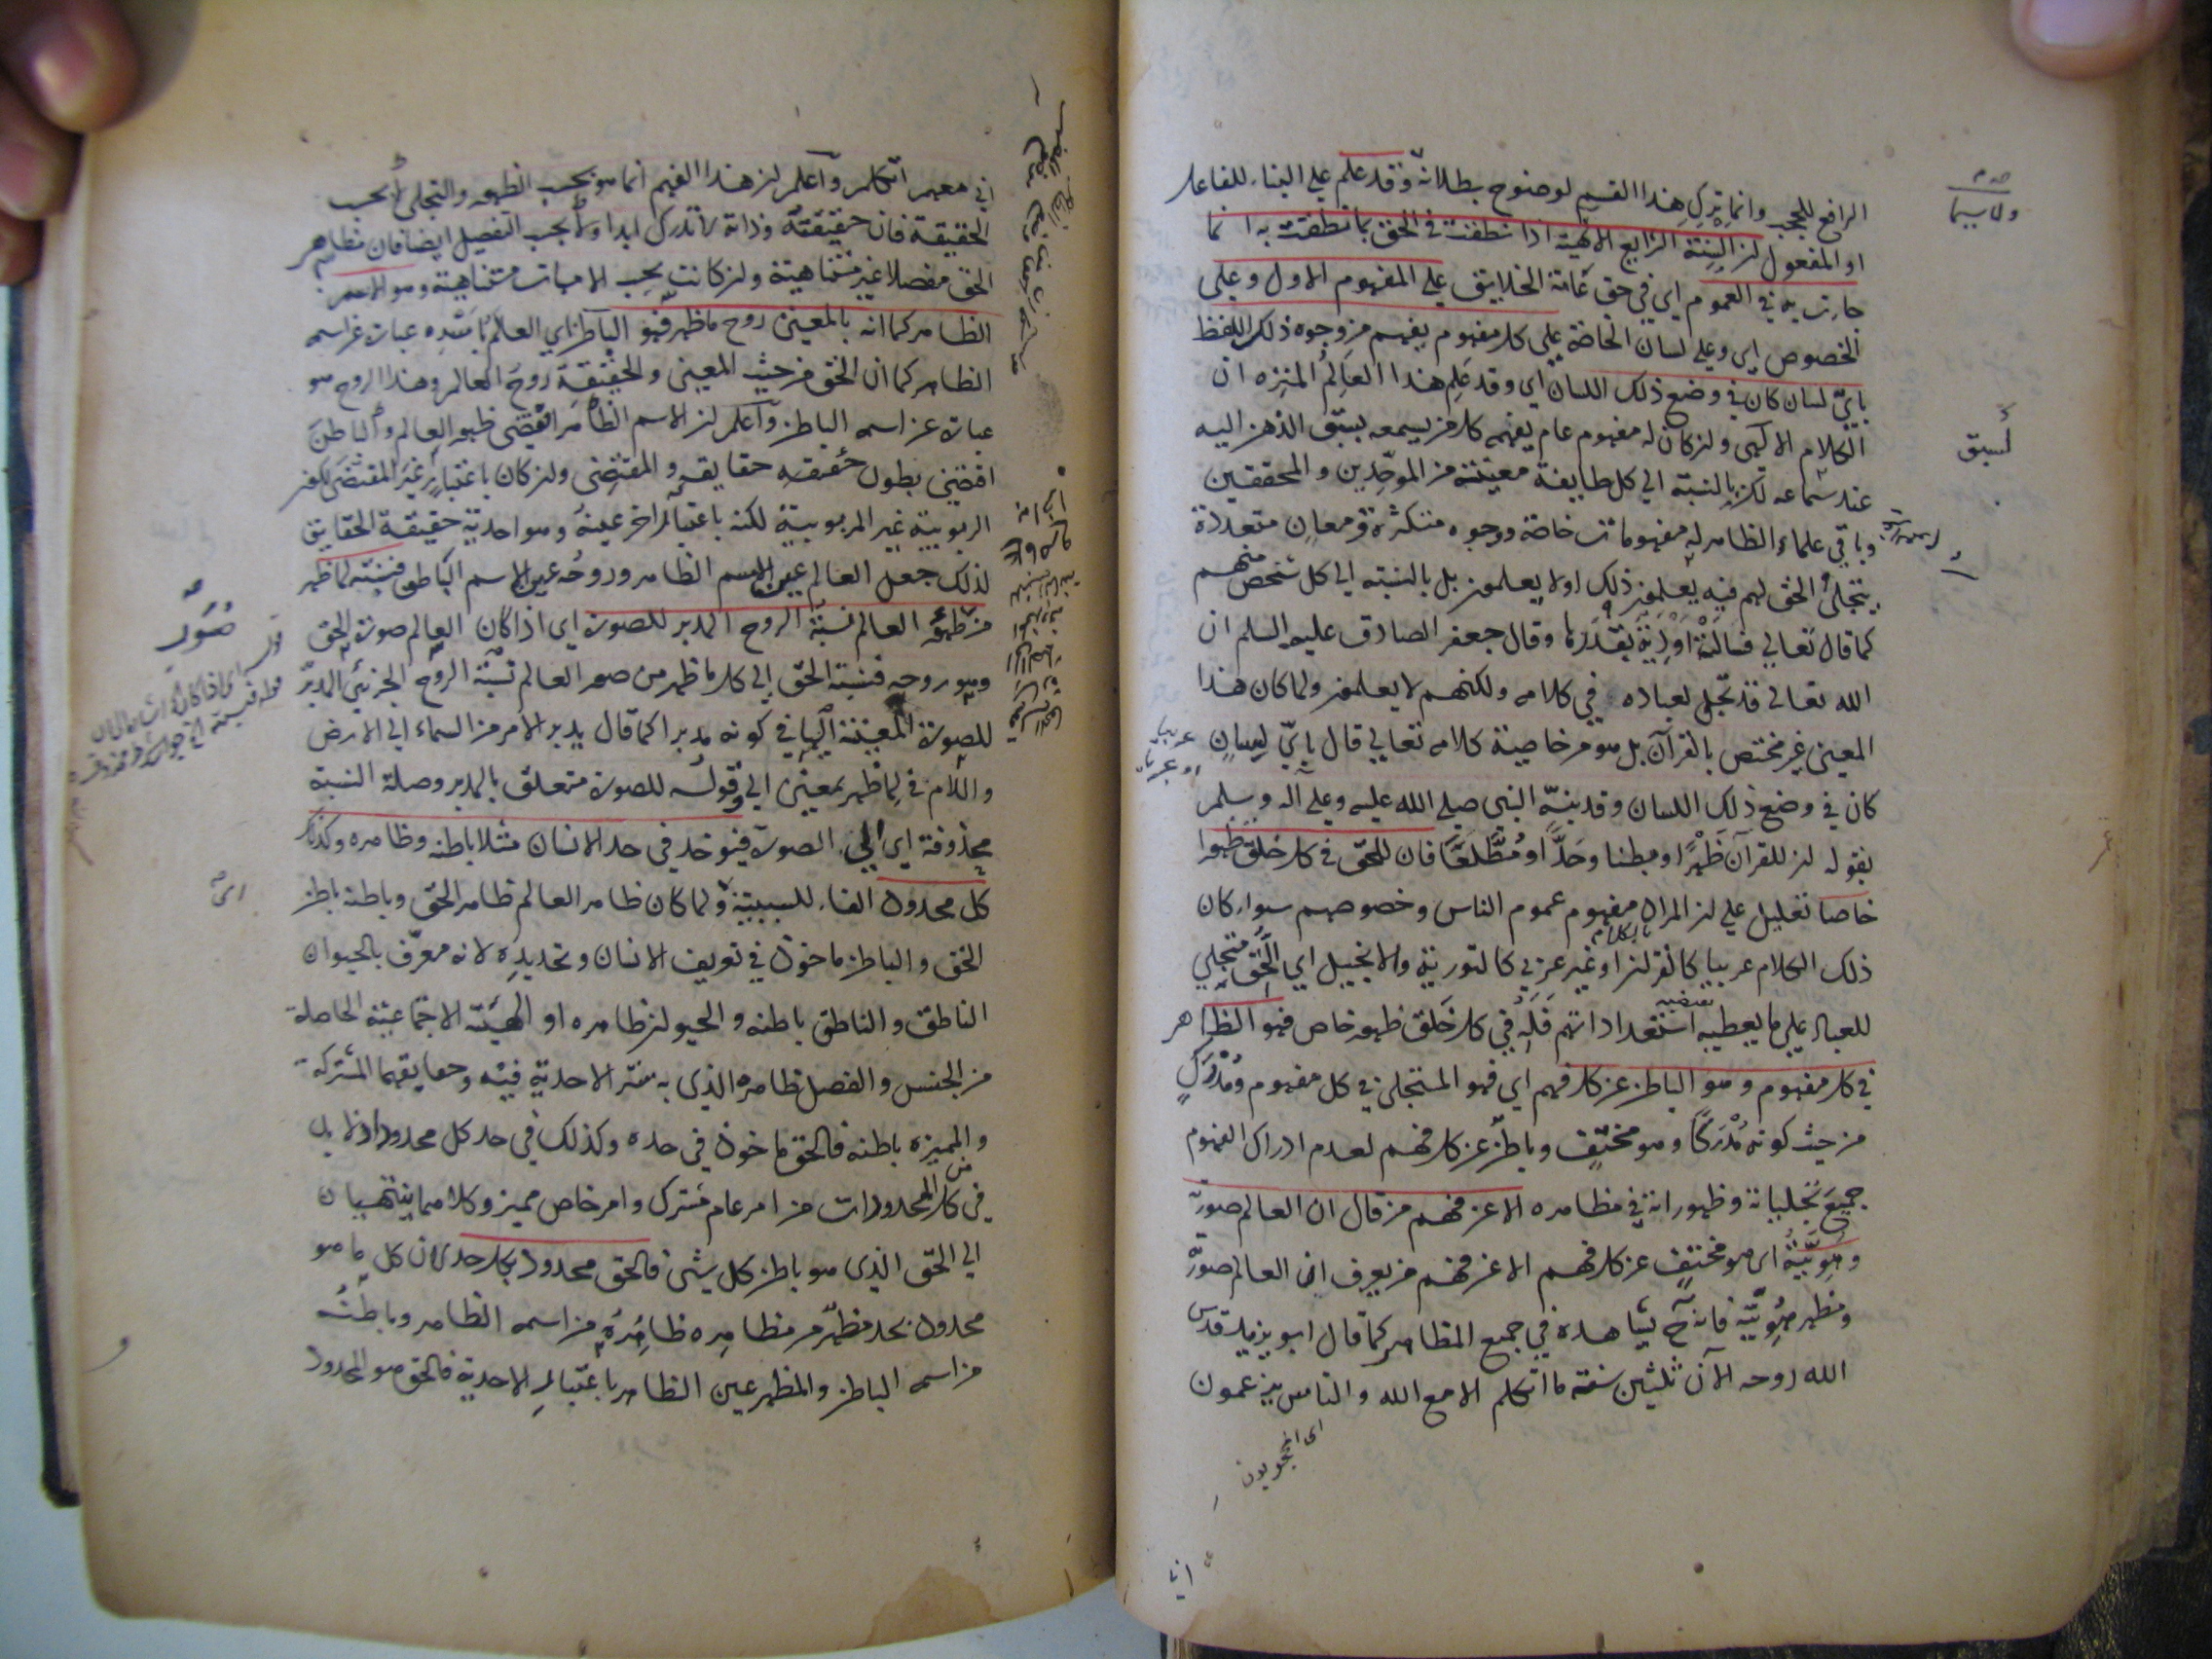 الرافع للحجب وانما ترك هذا القسم لوضوح بطلانه وقد علم علي البناء للفاعل
او المفعول لن السنة الشرايع الالهية اذا نطقت في الحق بما نطقت به انما
جاءت به في العموم اي في حق عامة الخلايق علي المفهوم الاول وعلي
الخصوص اي وعلي لسان الخاصة علي كل مفهوم يفهم من وجوه ذلك اللفظ
باي لسان كان في وضع ذلك اللسان اي وقد علم هذا العالم المنزه ان
الكلام الالهي ولن كان له مفهوم عام يفهمه كل من يسمعه يسبق الذهن اليه
عند سماعه لكن بالنسبة الي كل طايفة معينة من الموحدين والمحققين
وباقي علماء الظاهر له مفهومات خاصة ووجوه متكثرة ومعان متعددة
يتجلي الحق لهم فيه يعلمون ذلك اولا يعلمون بل بالنسبه الي كل شخص منهم
كما قال تعالي فسالت اودية بقدرها وقال جعفر الصادق عليه السلم ان
الله تعالي قد تجلي لعباده في كلامه ولكنهم لا يعلمون ولما كان هذا
المعني غير مختص بالقرآن بل هو من خاصية كلامه تعالي قال باي لسان
كان في وضع ذلك اللسان وقد بينه النبي صلي الله عليه وعلي آله وسلم
بقوله لن للقرآن ظهرا وبطنا وحدا ومطلعا فان للحق في كل خلق ظهورا
خاصا تعليل علي لن المراد مفهوم عموم الناس وخصوصهم سواء كان
ذلك الكلام عربيا كالقرآن او غير عربي كالتورية والانجيل اي الحق متجلي
للعباد علي ما يعطيه استعداداتهم فله في كل خلق ظهور خاص فهو الظاهر
في كل مفهوم وهو الباطن عن كل فهم اي فهو المتجلي في كل مفهوم ومدرك
من حيث كونه مدركا وهو مختف وباطن عن كل فهم لعدم ادراك الفهوم
جميع تجلياته وظهوراته في مظاهره الا عن فهم من قال ان العالم صورته
وهويته اي هو مختف عن كل فهم الا عن فهم من يعرف ان العالم صورته
ومظهر هويته فانه ح يشاهده في جميع المظاهر كما قال ابو يزيد قدس
الله روحه الآن ثلثين سنة ما اتكلم الا مع الله والناس يزعمون
اي المحجوبون
اني
ولا سيما
لسبق
اني معهم اتكلم واعلم لن هذا الفهم انما هو بحسب الظهور والتجلي لا بحسب
الحقيقة فان حقيقته وذاته لا تدرك ابدا ولا بحسب التفصيل ايضا فان مظاهر
الحق مفصلا غير متناهية ولن كانت بحسب الامهات متناهية وهو الاسم
الظاهر كما انه بالمعني روح ما ظهر فهو الباطن اي العالم باسره عبارة عن اسمه
الظاهر كما ان الحق من حيث المعني والحقيقة روح العالم وهذا الروح هو
عبارة عن اسمه الباطن واعلم لن الاسم الظاهر اقتضي ظهور العالم والباطن
اقتضي بطون حقايقه والمقتضي ولن كان باعتبار غير المقتضي لكون
الربوبية غير المربوبية لكنه باعتبار آخر عينه وهو احدية حقيقة الحقايق
لذلك جعل العالم عين الاسم الظاهر وروحه عين الاسم الباطن فنسبته لما ظهر
من صور العالم نسبة الروح المدبر للصورة اي اذا كان العالم صورة الحق
وهو روحه فنسبة الحق الي كل ما ظهر من صور العالم نسبة الروح الجزئي المدبر
للصورة المعينة اليها في كونه مدبرا كما قال يدبر الامر من السماء الي الارض
واللام في لما ظهر بمعني الي وقوله للصورة متعلق بالمدبر وصلة النسبة
محذوفة اي الي الصورة فيؤخذ في حد الانسان مثلا باطنه وظاهره وكذلك
كل محدود الفاء للسببية ولما كان ظاهر العالم ظاهر الحق وباطنه باطن
الحق والباطن ماخوذ في تعريف الانسان وتحديده لانه معرف بالحيوان
الناطق والناطق باطنه والحيوان ظاهره او الهيئة الاجتماعية الحاصلة
من الجنس والفصل ظاهره الذي به سر الاحدية فيه وحقايقهما المشتركة
والمميزة باطنه فالحق ماخوذ في حده وكذلك في حد كل محدود اذ لا بد
في كل المحدودات من امر عام مشترك وامر خاص مميز وكلاهما ينتهيان
الي الحق الذي هو باطن كل شئ فالحق محدود بكل حد لان كل ما هو
محدود بحد مظهر من مظاهره ظاهره من اسمه الظاهر وباطنه
من اسمه الباطن والمظهر عين الظاهر باعتبار الاحدية فالحق هو المحدود
صور